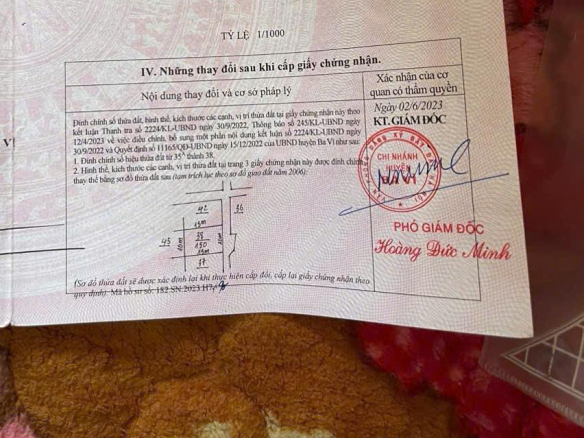 TỶ LỆ 1/1000
IV. Những thay đổi sau khi cấp giấy chứng nhận.
Nội dung thay đổi và cơ sở pháp lý
Xác nhận của cơ
quan có thẩm quyền
Đính chính số thửa đất, hình thể, kích thước các cạnh, vị trí thửa đất tại giấy chứng nhận này theo
kết luận Thanh tra số 2224/KL-UBND ngày 30/9/2022, Thông báo số 245/KL-UBND ngày
12/4/2023 về việc điều chỉnh, bổ sung một phần nội dung kết luận số 2224/KL-UBND ngày
30/9/2022 và Quyết định số 11165/QĐ-UBND ngày 15/12/2022 của UBND huyện Ba Vì như sau:
1. Đính chính số hiệu thửa đất từ 35 thành 38.
2. Hình thể, kích thước các cạnh, vị trí thửa đất tại trang 3 giấy chứng nhận này được đính chính
thay thế bằng sơ đồ thửa đất sau (tạm trích lục theo sơ đồ giao đất năm 2006):
42
36
15m
45
38
150
15m
37
(Sơ đồ thửa đất sẽ được xác định lại khi thực hiện cấp đổi, cấp lại giấy chứng nhận theo
quy định). Mã hồ sơ số: 182.SN.2023.H7
Ngày 02/6/2023
KT. GIÁM ĐỐC
CHI NHÁNH
HUYỆN
PHÓ GIÁM ĐỐC
Hoàng Đức Minh